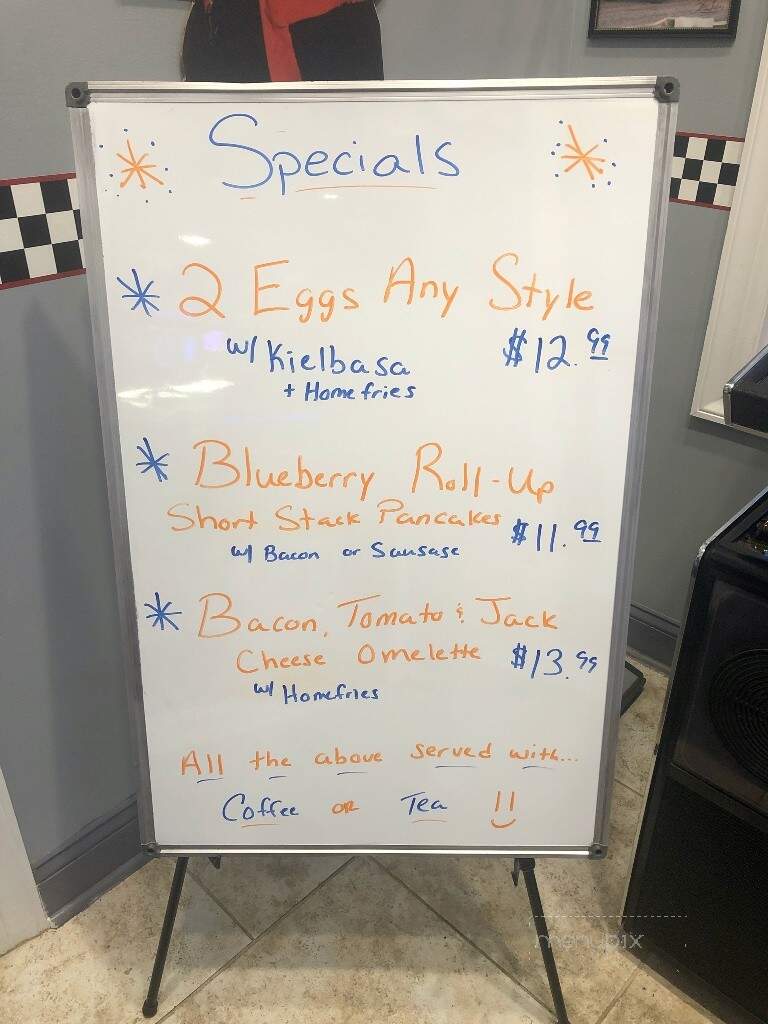 Specials
2 Eggs Any Style
w/ Kielbasa $12.99
+ Homefries
Blueberry Roll-Up
Short Stack Pancakes $11.99
w/ Bacon or Sausage
Bacon, Tomato & Jack
Cheese Omelette $13.99
w/ Homefries
All the above served with...
Coffee or Tea !!
menupix